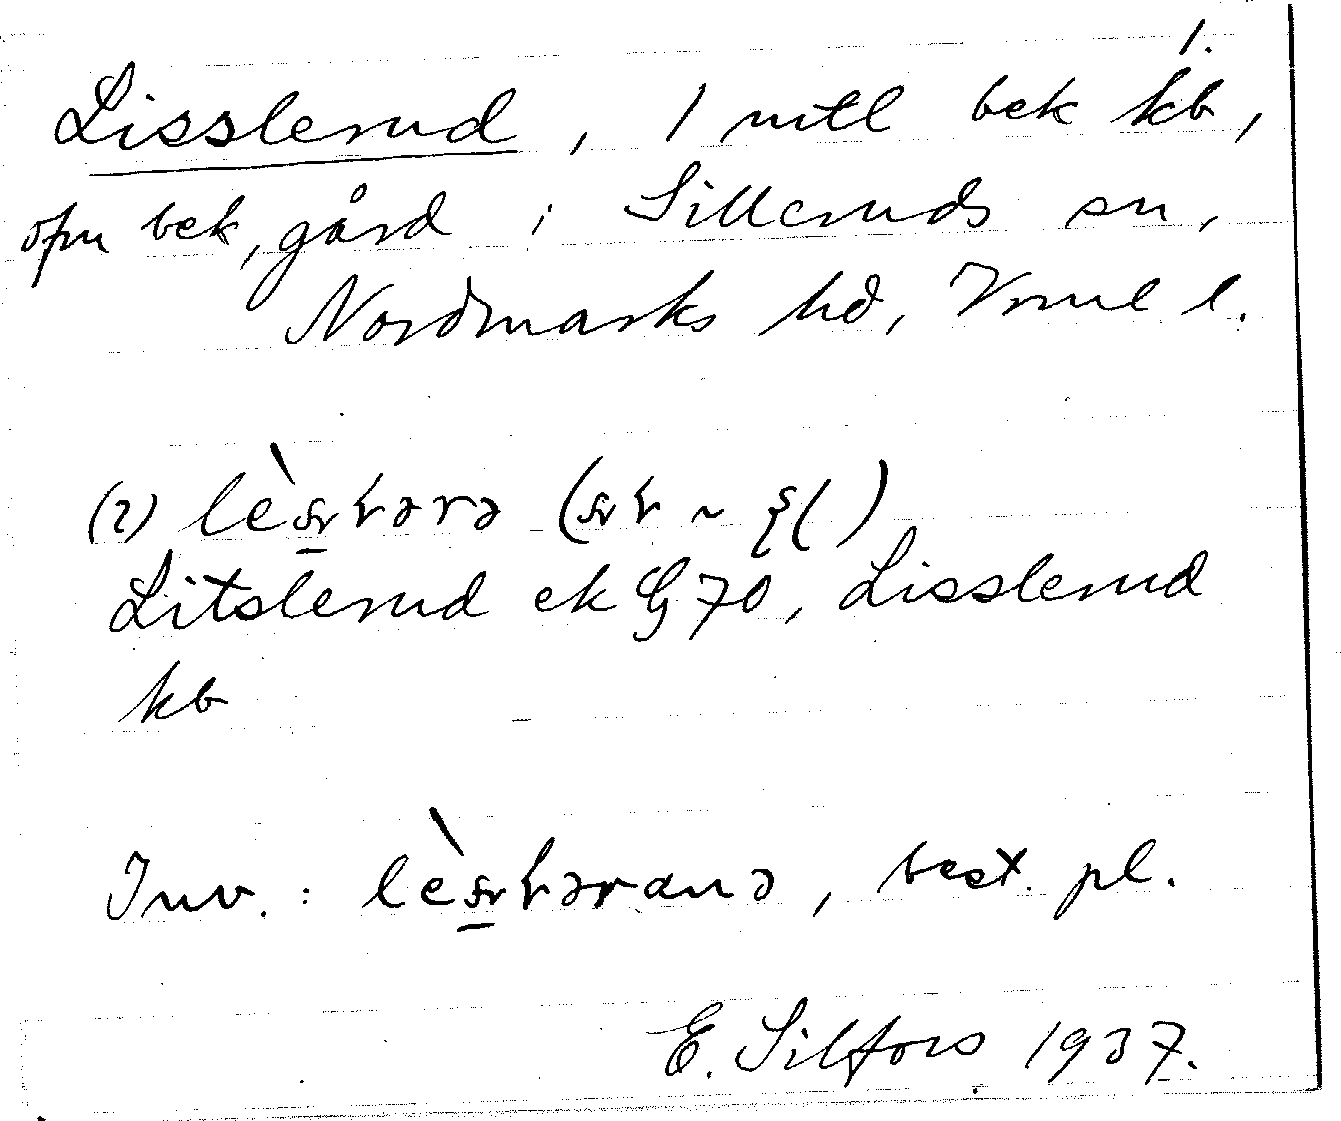 1.
Lisslerud, 1 mtl bek kb,
ofm bek, gård i Silleruds sn,
Nordmarks hd, Vrml l.
(2)
Litslerud ek G 70, Lisslerud
kb
Inv.: best. pl.
E. Silfors 1937.